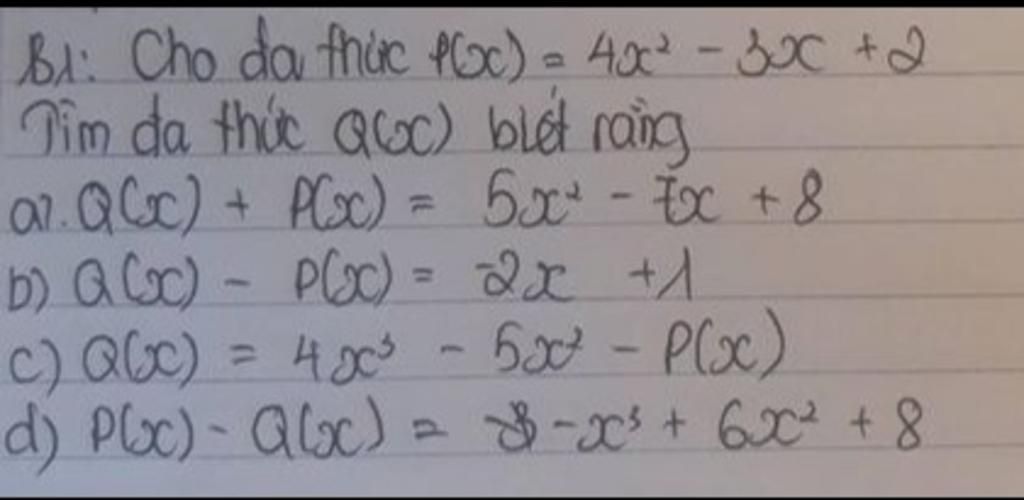 B1: Cho đa thức P(x) = 4x² - 3x + 2
Tìm đa thức Q(x) biết rằng
a). Q(x) + P(x) = 5x² - 7x + 8
b) Q(x) - P(x) = -2x + 1
c) Q(x) = 4x³ - 5x² - P(x)
d) P(x) - Q(x) = -x³ + 6x² + 8